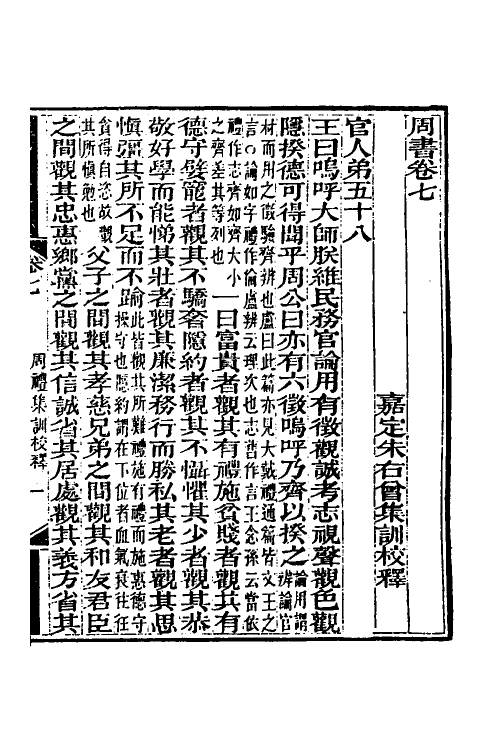 周書卷七
嘉定朱右曾集訓校釋
官人弟五十八
王曰嗚呼大師朕維民務官論用有徵觀誠考志視聲觀色觀
隱揆德可得聞乎周公曰亦有六徵嗚呼乃齊以揆之辨論官
材而用之徵驗齊辨也盧曰此篇亦見大戴禮通篇皆文王之
言〇論如字禮作論盧辨云理次也志舊作言王念孫云當依
禮作志齊如齊大小
之齊差其等列也一曰富貴者觀其有禮施貧賤者觀其有
德守嬖寵者觀其不驕奢隱約者觀其不懾懼其少者觀其恭
敬好學而能悌其壯者觀其廉潔務行而勝私其老者觀其思
慎彊其所不足而不踰此皆觀其所難禮施有禮而施惠德守
操守也隱約謂在下位者血氣衰往往
貪得自恣故觀
其所慎勉也父子之間觀其孝慈兄弟之間觀其和友君臣
之間觀其忠惠鄉黨之間觀其信誠省其居處觀其義方省其
卷七
周禮集訓校釋
一